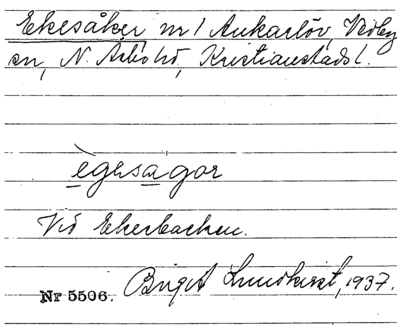 Ekesåker nr 1 Ankarlöv, Vedby
sn, N. Åsbo hd, Kristianstads l.
ègəsagor
Vid Ekerbacken.
Nr 5506. Birgit Lundkvist, 1937.